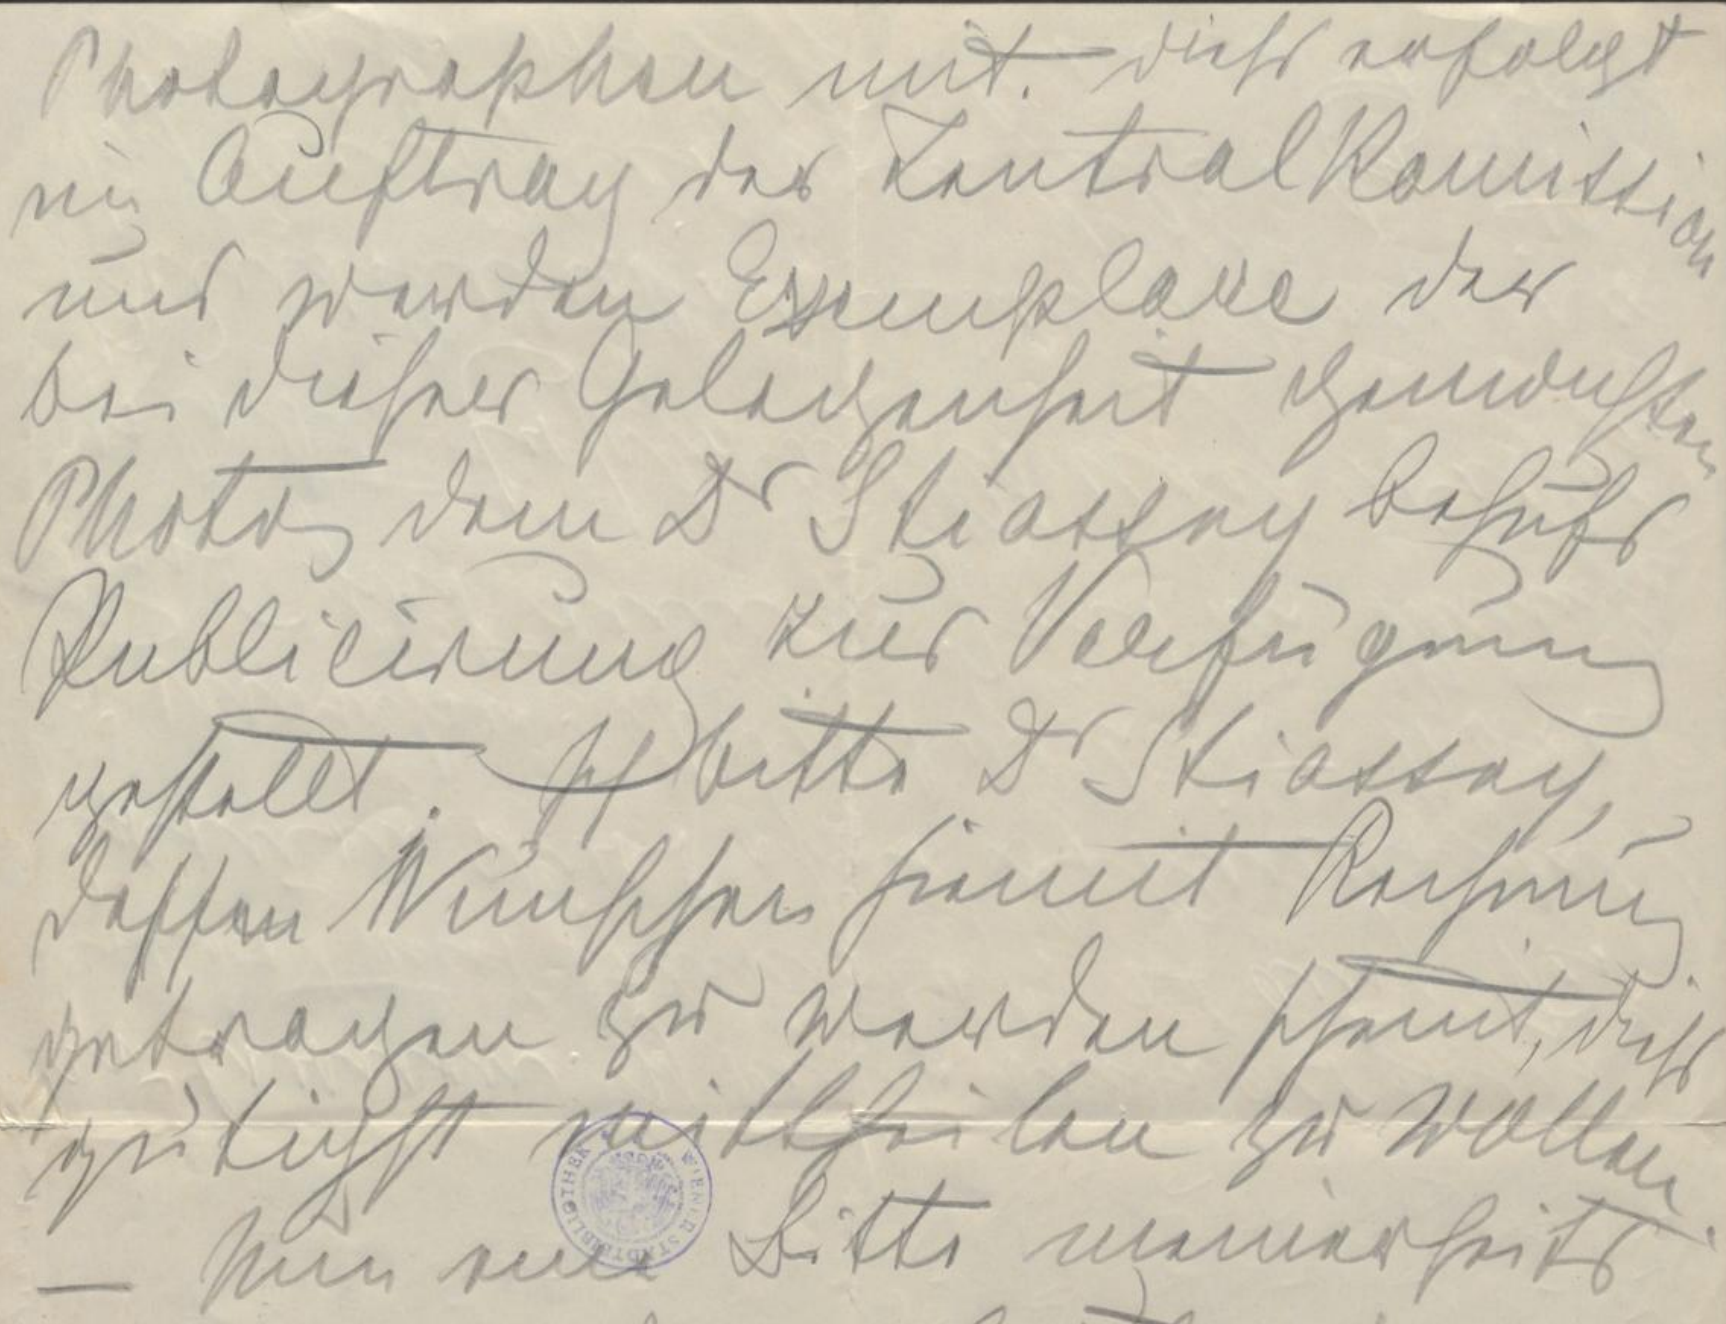 Photographen mit. Dieß erfolgt
im Auftrag der Zentral Komission
und werden Exemplare der
bei dieser Gelegenheit gemachten
Photog dem Dr Stiassny behufs
Publicirung zur Verfügung
gestellt. Ich bitte Dr Stiassny,
dessen Wünschen hiemit Rechnung
getragen zu werden scheint, dieß
gütigst mittheilen zu wollen.
— Nun eine Bitte meinerseits
WIENER STADTBIBLIOTHEK